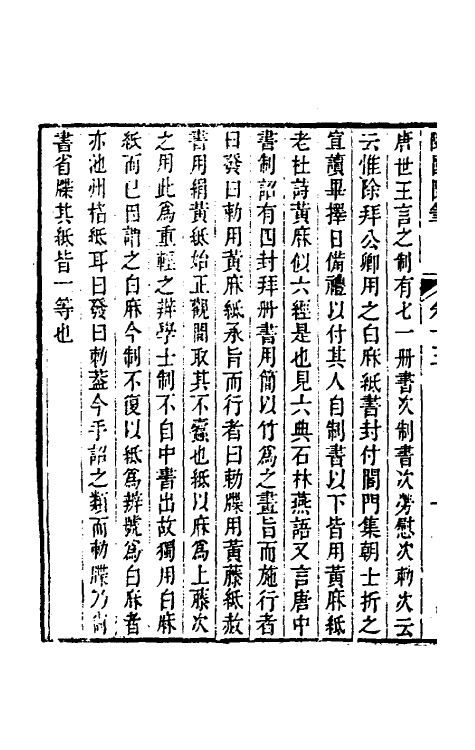 唐世王言之制有七一册書次制書次勞慰次勑次云
云惟除拜公卿用之白麻紙書封付閤門集朝士折之
宣讀畢擇日備禮以付其人自制書以下皆用黃麻紙
老杜詩黃麻似六經是也見六典石林燕語又言唐中
書制詔有四封拜册書用簡以竹爲之畫旨而施行者
曰發曰勅用黃麻紙承旨而行者曰勅牒用黃藤紙赦
書用絹黃紙始正觀間取其不蠧也紙以麻爲上藤次
之用此爲重輕之辨學士制不自中書出故獨用白麻
紙而已因謂之白麻今制不復以紙爲辨號爲白麻者
亦池州楮紙耳曰發曰勑蓋今手詔之類而勅牒乃尙
書省牒其紙皆一等也